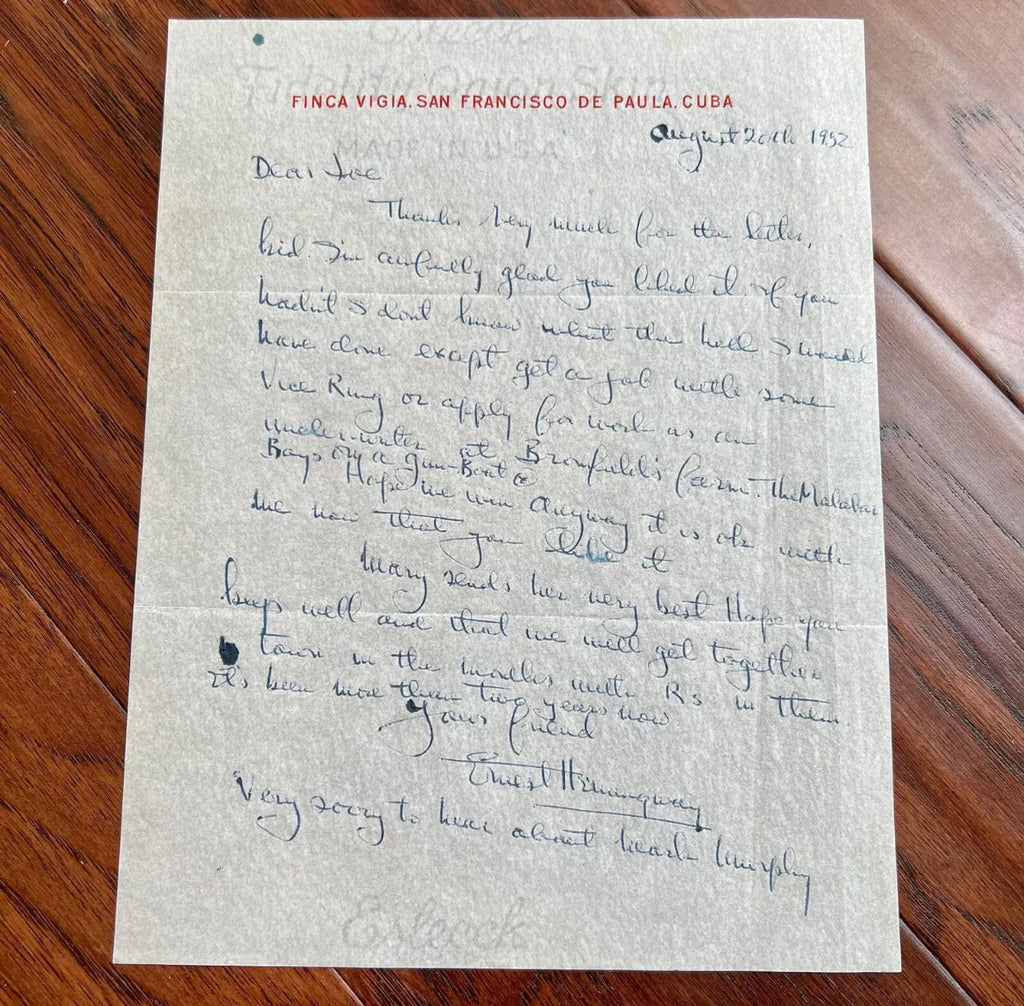 Esleeck
Fidelity Onion Skin
FINCA VIGIA, SAN FRANCISCO DE PAULA, CUBA
MADE IN U.S.A.
August 20th 1952
Dear Joe
Thanks very much for the letter,
kid. I'm awfully glad you liked it. If you
hadn't I don't know what the hell I would
have done except get a job with some
Vice Ring or apply for work as an
under-writer at Bromfield's farm. The Malabar
Boys on a Gun-Boat
Hope we win Anyway it is ok with
me now that you like it
Mary sends her very best Hope you
keep well and that we will get together
town in the months with Rs in them
it's been more than two years now
Your friend
Ernest Hemingway
Very sorry to hear about Murphy
Esleeck